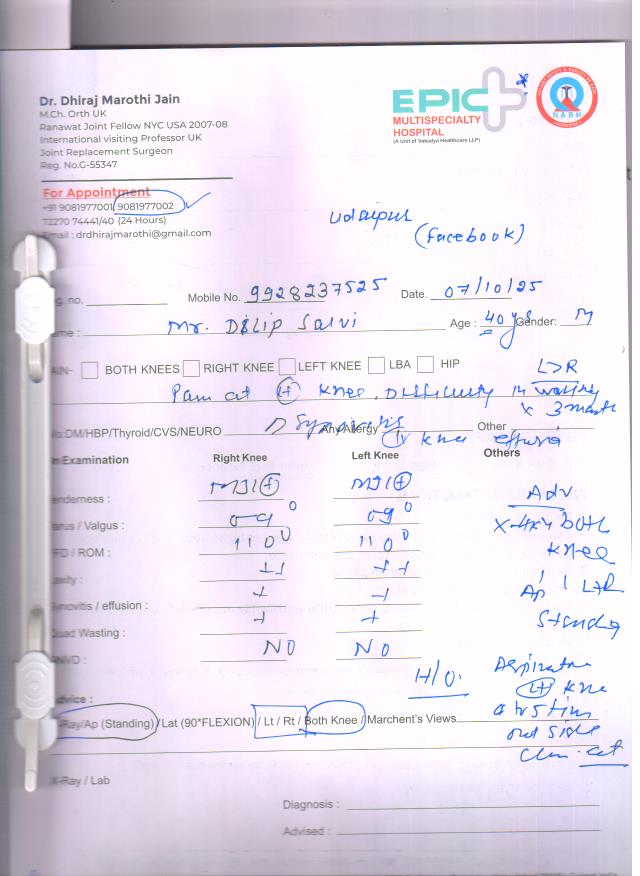 Dr. Dhiraj Marothi Jain
M.Ch. Orth UK
Ranawat Joint Fellow NYC USA 2007-08
International visiting Professor UK
Joint Replacement Surgeon
Reg. No.G-55347
EPIC
MULTISPECIALTY
HOSPITAL
(A Unit of Vatsalya Healthcare LLP)
NABH
For Appointment
+91 9081977001 9081977002
72270 74441/40 (24 Hours)
Email : drdhirajmarothi@gmail.com
Udaipur
(Facebook)
g. no. Mobile No. 9928237525 Date. 07/10/25
me : Mr. Dilip Salvi Age : 40 yrs Gender: M
AIN- BOTH KNEES RIGHT KNEE LEFT KNEE LBA HIP L>R
Pain at Lt knee, Difficulty in
x 3 month
/o:DM/HBP/Thyroid/CVS/NEURO Any Allergy Other
Lt knee effusion
n Examination Right Knee Left Knee Others
enderness : MJL(+) MJL(+)
arus / Valgus : 09° 09°
FD / ROM : 110° 110°
axity : ++ ++
ynovitis / effusion : + +
uad Wasting : + +
NVD : NO NO
Adv
X-Ray both
knee
AP / Lat
Standing
H/O. Aspiration
Lt knee
out side
dvice :
-Ray/Ap (Standing) / Lat (90*FLEXION) / Lt / Rt / Both Knee / Marchent's Views
X-Ray / Lab
Diagnosis :
Advised :